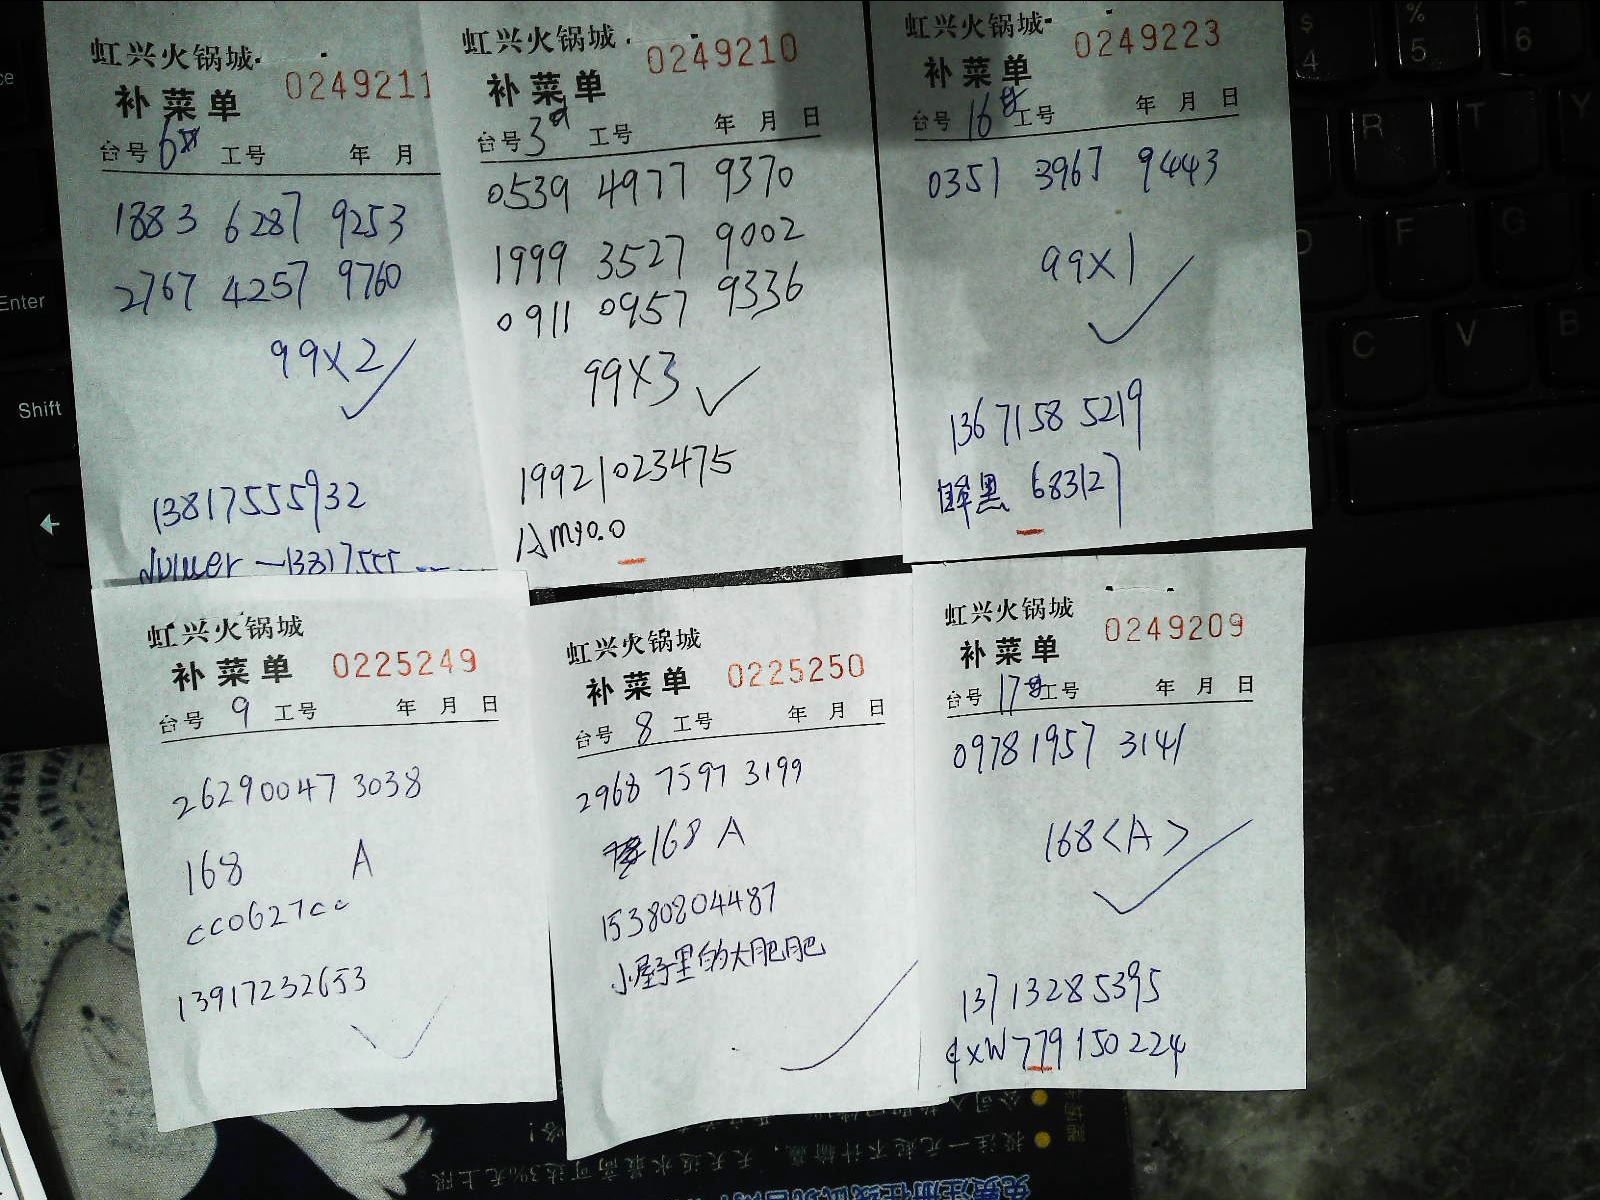 虹兴火锅城
补菜单 0249211
台号 6 工号 年 月
1883 6287 9253
2767 4257 9760
99X2
13817555932
虹兴火锅城
补菜单 0249210
台号 3 工号 年 月 日
0539 4977 9370
1999 3527 9002
0911 0957 9336
99X3
19921023475
Amyo.o
虹兴火锅城
补菜单 0249223
台号 16 工号 年 月 日
0351 3967 9443
99X1
136 7158 5219
黑 683127
虹兴火锅城
补菜单 0225249
台号 9 工号 年 月 日
262900473038
168 A
cc0627cc
13917232653
虹兴火锅城
补菜单 0225250
台号 8 工号 年 月 日
2968 7597 3199
168 A
15380804487
小屋子里的大肥肥
虹兴火锅城
补菜单 0249209
台号 17 工号 年 月 日
0978 1957 3141
168<A>
13713285395
779150224
Enter
Shift
$
4
%
5
6
R
T
Y
D
F
G
C
V
B
投注一元起不计输赢，天天返水最高可达3%无上限